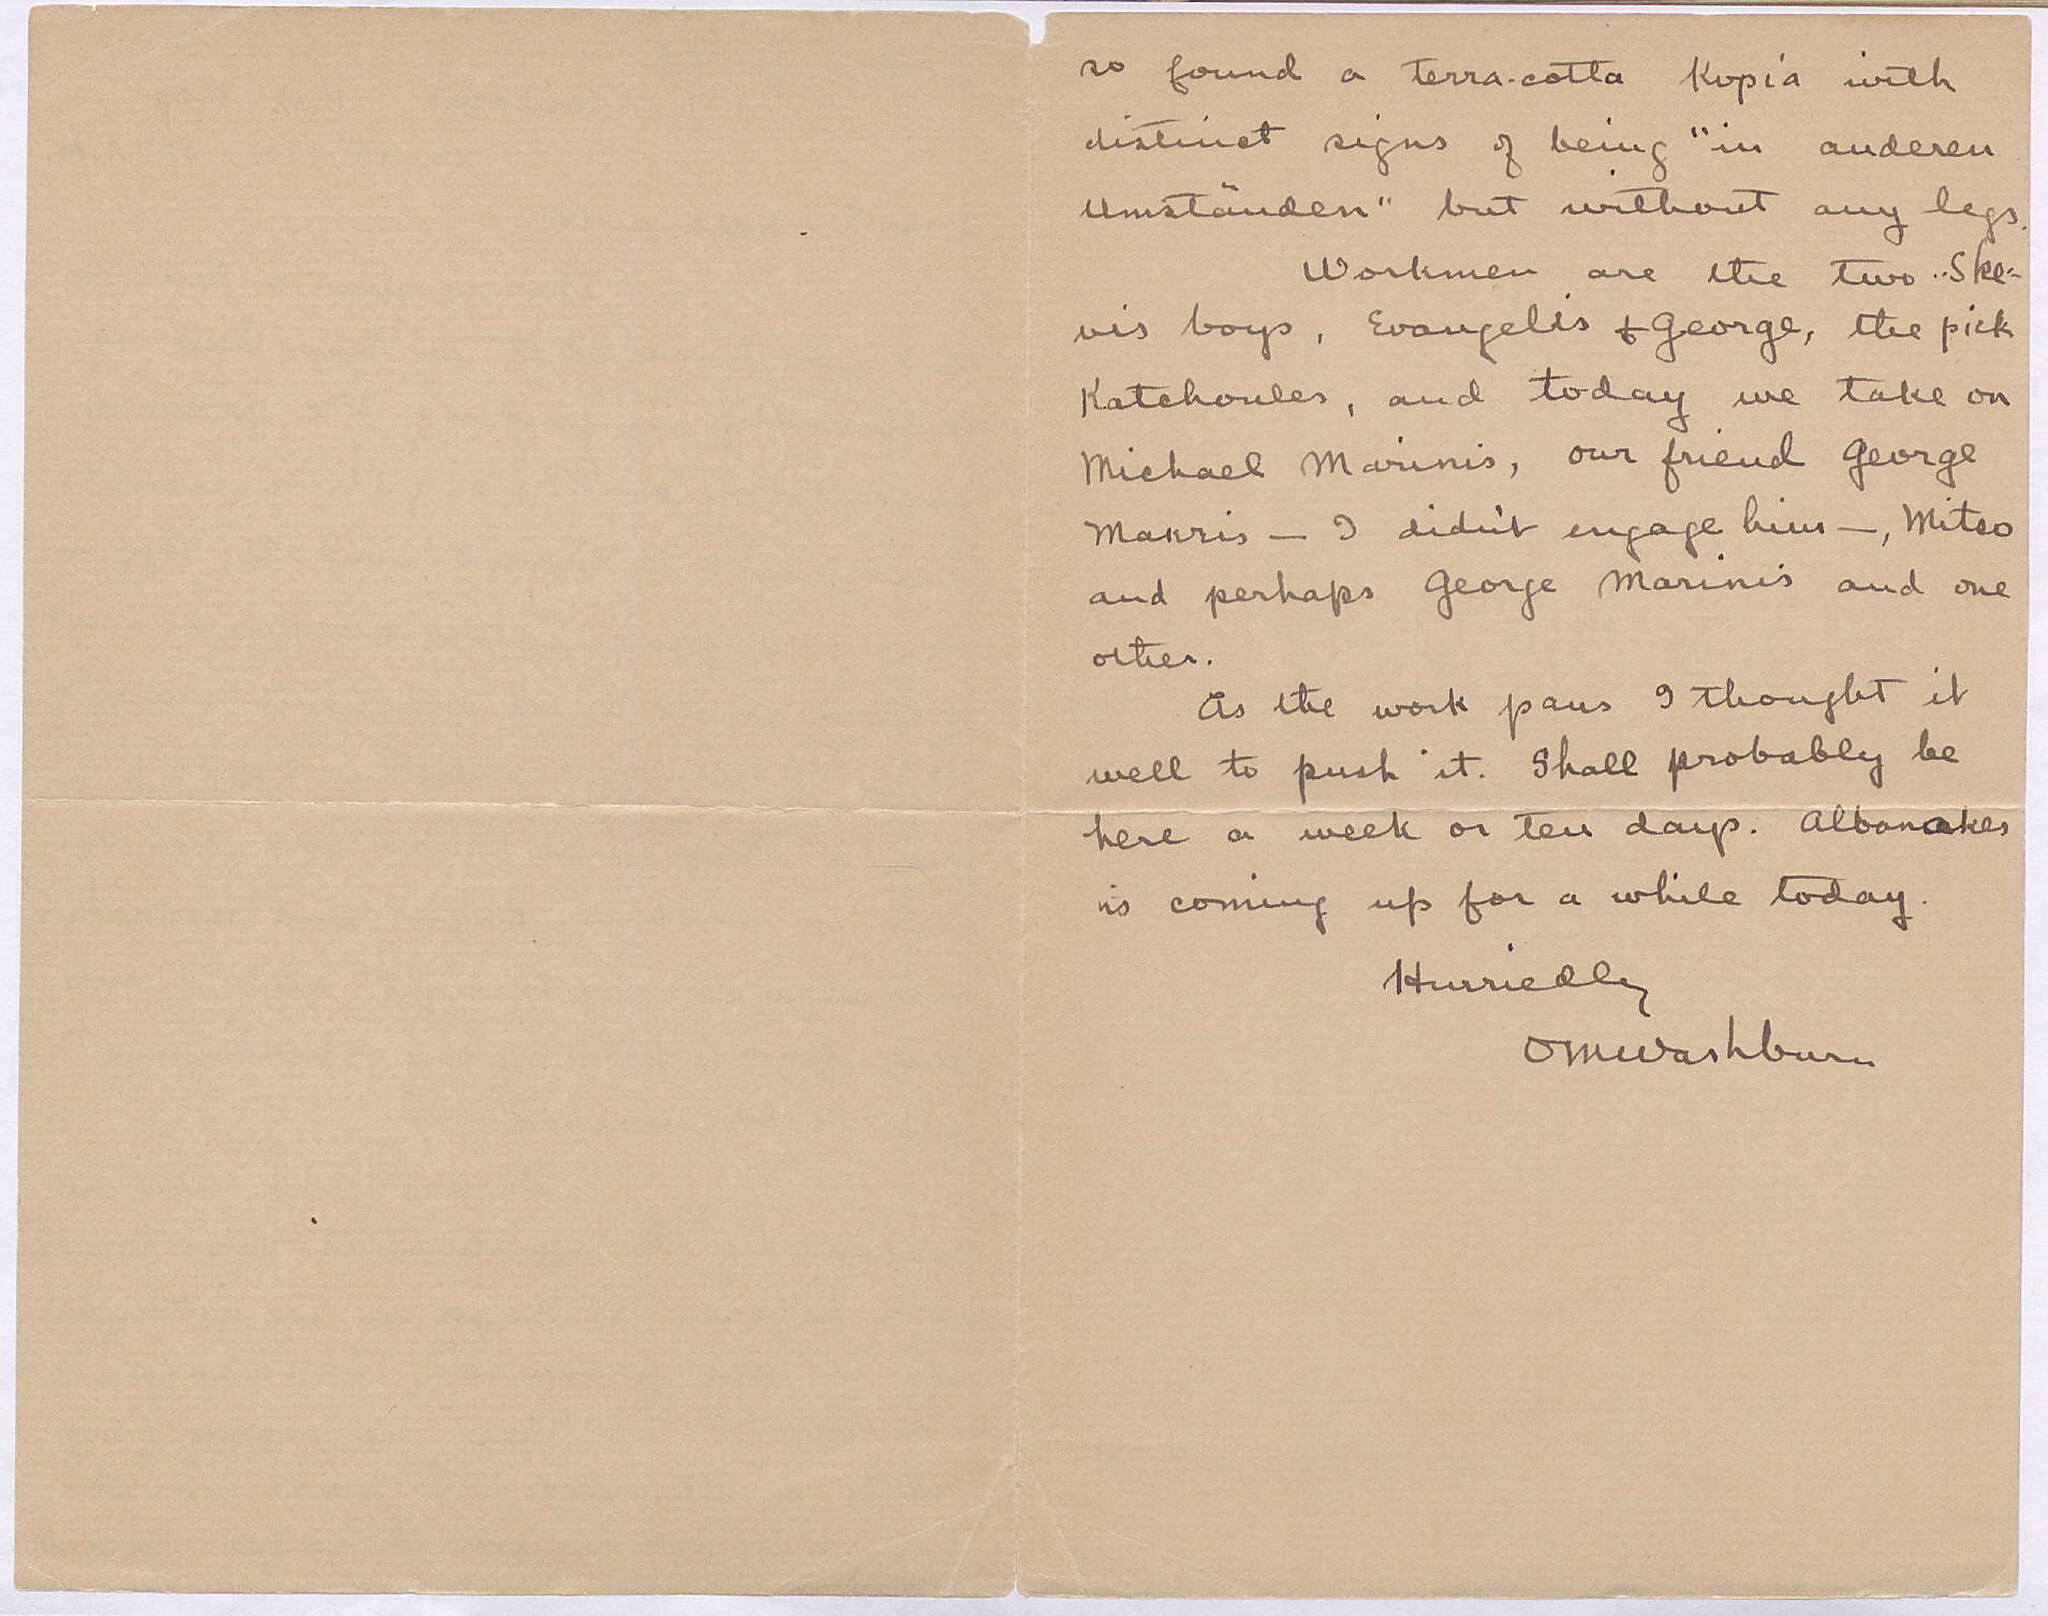 so found a terra-cotta κυρία with
distinct signs of being "in anderen
Umständen" but without any legs.
Workmen are the two Ske-
vis boys, Evangelis & George, the pick
Katchoules, and today we take on
Michael Marinis, our friend George
Makris — I didn't engage him —, Mitso
and perhaps George Marinis and one
other.
As the work pans I thought it
well to push it. Shall probably be
here a week or ten days. Albanakes
is coming up for a while today.
Hurriedly
OMWashburn